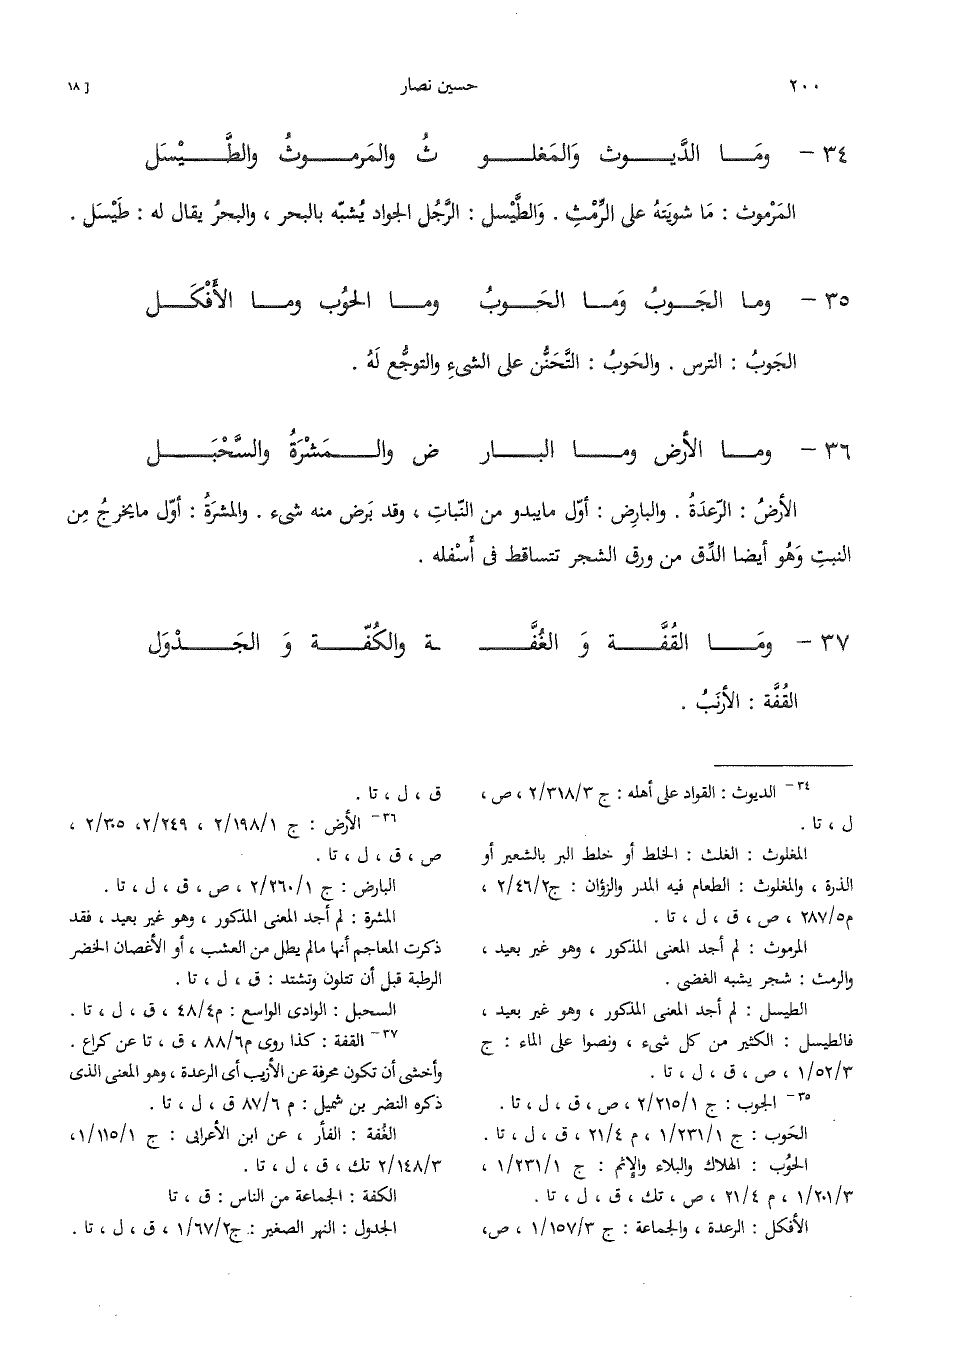 ٢٠٠ حسين نصار [ ١٨
٣٤ – ومَا الدَّيوث وَالمَغلوثُ والمَرموثُ والطَّيْسَل
المَرْموث : مَا شويتَهُ على الرِّمْثِ . وَالطَّيْسل : الرَّجُل الجواد يُشبّه بالبحر ، والبحرُ يقال له : طَيْسَل .
٣٥ – وما الجَوبُ وَمَا الحَوبُ وما الحُوْب وما الأَفْكَل
الجَوبُ : الترس . والحَوبُ : التَّحَنُّن على الشىءِ والتوجُّع لَهُ .
٣٦ – وما الأَرض وما البارض والمَشْرَةُ والسَّحْبَل
الأَرضُ : الرّعدَةُ . والبارِض : أوّل مايبدو من النّباتِ ، وقد بَرض منه شىء . والمشرَةُ : أوّل مايخرجُ مِن
النبتِ وَهُو أيضا الدِّق من ورق الشجر تتساقط فى أَسْفله .
٣٧ – ومَا القُفَّة وَ الغُفَّة والكُفّة وَ الجَدْوَل
القُفَّة : الأرنَبُ .
٣٤– الديوث : القواد على أهله : ج ٢/٣١٨/٣ ، ص ،
ل ، تا .
المغلوث : الغلث : الخلط أو خلط البر بالشعير أو
الذرة ، والمغلوث : الطعام فيه المدر والزؤان : ج٢/٤٦/٢ ،
م٢٨٧/٥ ، ص ، ق ، ل ، تا .
المرموث : لم أجد المعنى المذكور ، وهو غير بعيد ،
والرمث : شجر يشبه الغضى .
الطيسل : لم أجد المعنى المذكور ، وهو غير بعيد ،
فالطيسل : الكثير من كل شىء ، ونصوا على الماء : ج
١/٥٢/٣ ، ص ، ق ، ل ، تا .
٣٥– الجوب : ج ٢/٢١٥/١ ، ص ، ق ، ل ، تا .
الحَوب : ج ١/٢٣١/١ ، م ٢١/٤ ، ق ، ل ، تا .
الحُوْب : الهلاك والبلاء والإثم : ج ١/٢٣١/١ ،
١/٢٠١/٣ ، م ٢١/٤ ، ص ، تك ، ق ، ل ، تا .
الأفكل : الرعدة ، والجماعة : ج ١/١٥٧/٣ ، ص،
ق ، ل ، تا .
٣٦– الأرض : ج ٢/١٩٨/١ ، ٢/٢٤٩، ٢/٣٠٥ ،
ص ، ق ، ل ، تا .
البارض : ج ٢/٢٦٠/١ ، ص ، ق ، ل ، تا .
المشرة : لم أجد المعنى المذكور ، وهو غير بعيد ، فقد
ذكرت المعاجم أنها مالم يطل من العشب ، أو الأغصان الخضر
الرطبة قبل أن تتلون وتشتد : ق ، ل ، تا .
السحبل : الوادى الواسع : م٤٨/٤ ، ق ، ل ، تا .
٣٧– القفة : كذا روى م٨٨/٦ ، ق ، تا عن كراع .
وأخشى أن تكون محرفة عن الأزيب أى الرعدة ، وهو المعنى الذى
ذكره النضر بن شميل : م ٨٧/٦ ق ، ل ، تا .
الغُفة : الفأر ، عن ابن الأعرابى : ج ١/١١٥/١،
٢/١٤٨/٣ تك ، ق ، ل ، تا .
الكفة : الجماعة من الناس : ق ، تا
الجدول : النهر الصغير : ج١/٦٧/٢ ، ق ، ل ، تا .